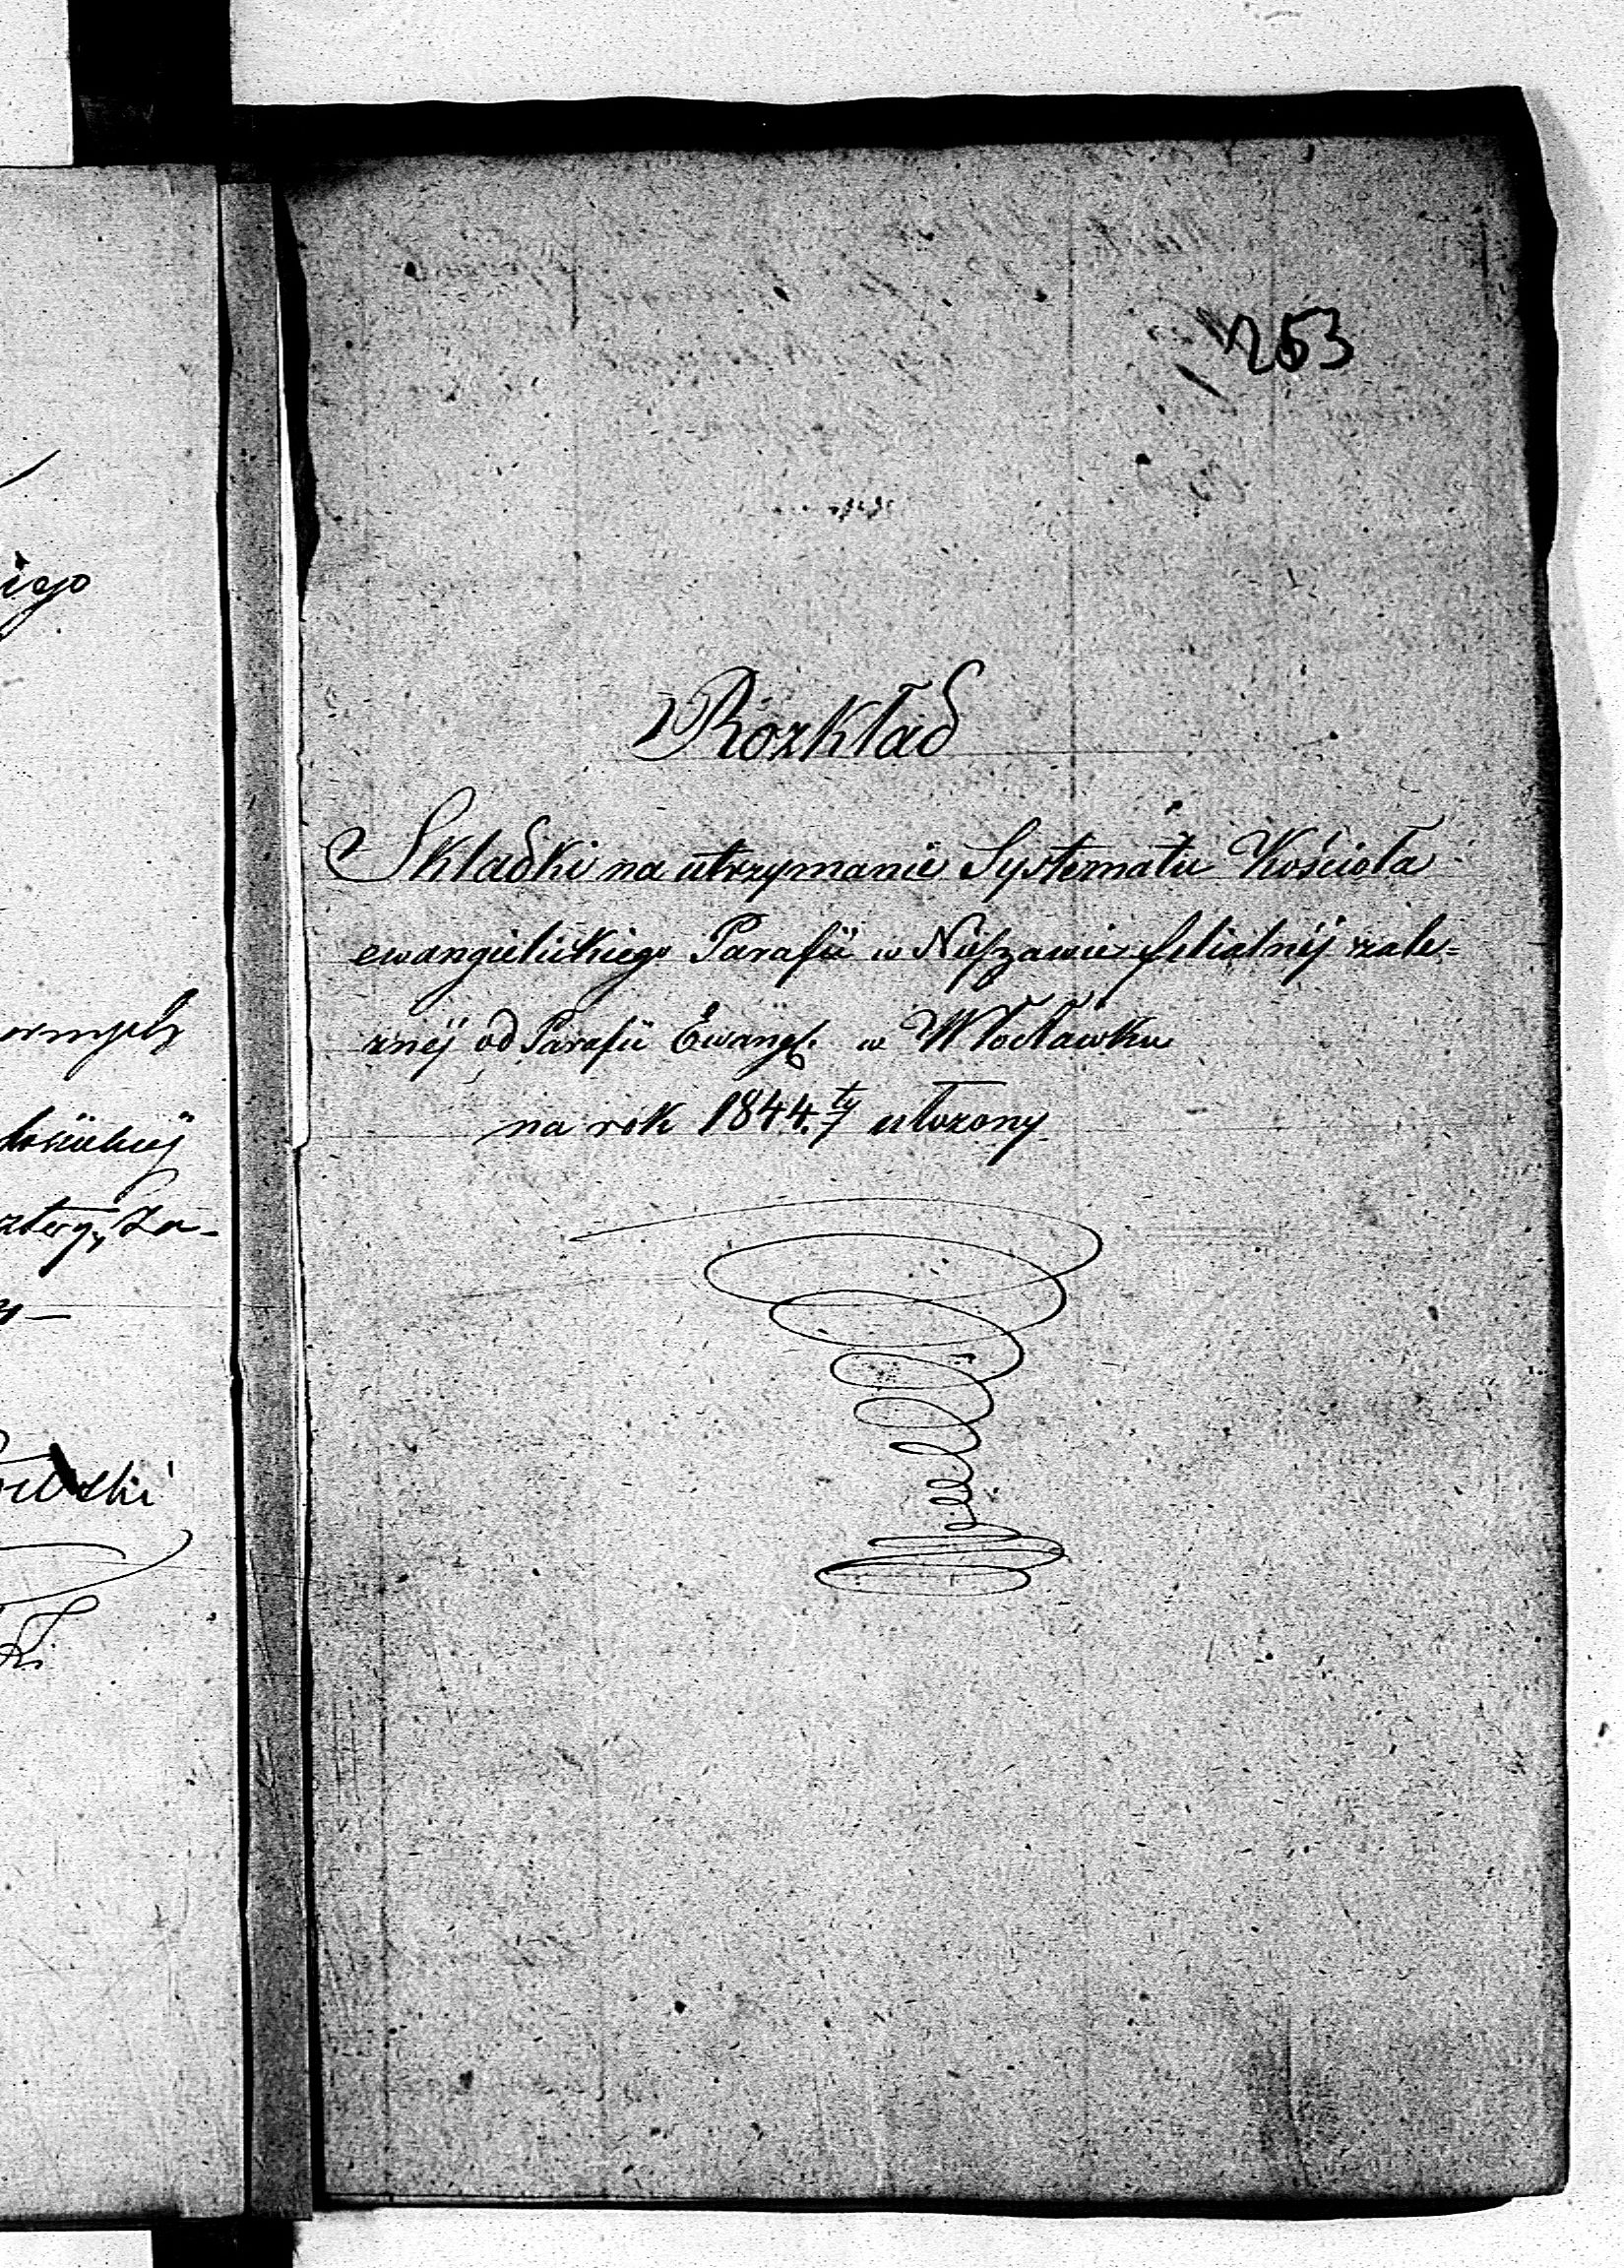 253
Rozkład
Składki na utrzymanie Systematu Kościoła
ewangielickiego Parafii w Nieszawie filialnéj zale=
znéj od Parafii Ewang. w Włocławku
na rok 1844.ty ułozony
iego